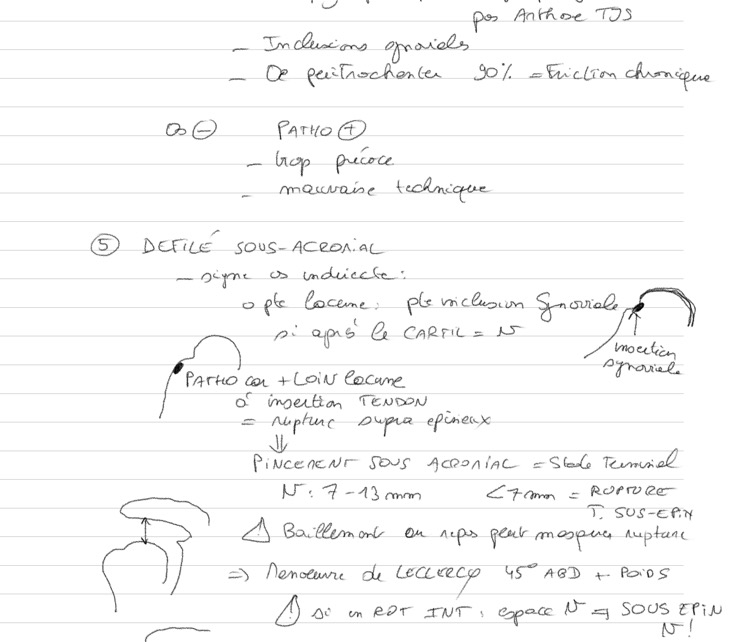 pos Arthose TJS
– Inclusions synoviels
– Œ peritrochanter 90% = Friction chronique
Os ⊖ PATHO ⊕
– trop précoce
– mauvaise technique
⑤ DEFILÉ SOUS-ACROMIAL
– signe os indirecte :
o pte lacune : pte inclusion Synoviale
si après le CARTIL = N
insertion
synoviale
PATHO car + LOIN lacune
à insertion TENDON
= rupture supra epineux
⇓
PINCEMENT SOUS ACROMIAL = Stade Terminal
N : 7 – 13 mm < 7 mm = RUPTURE
T. SUS-EPIN
⚠ Baillement au repos peut masquer rupture
⇒ Manoeuvre de LECLERCQ 45° ABD + POIDS
⚠ Si en ROT INT : espace N ⇒ SOUS EPIN
N !